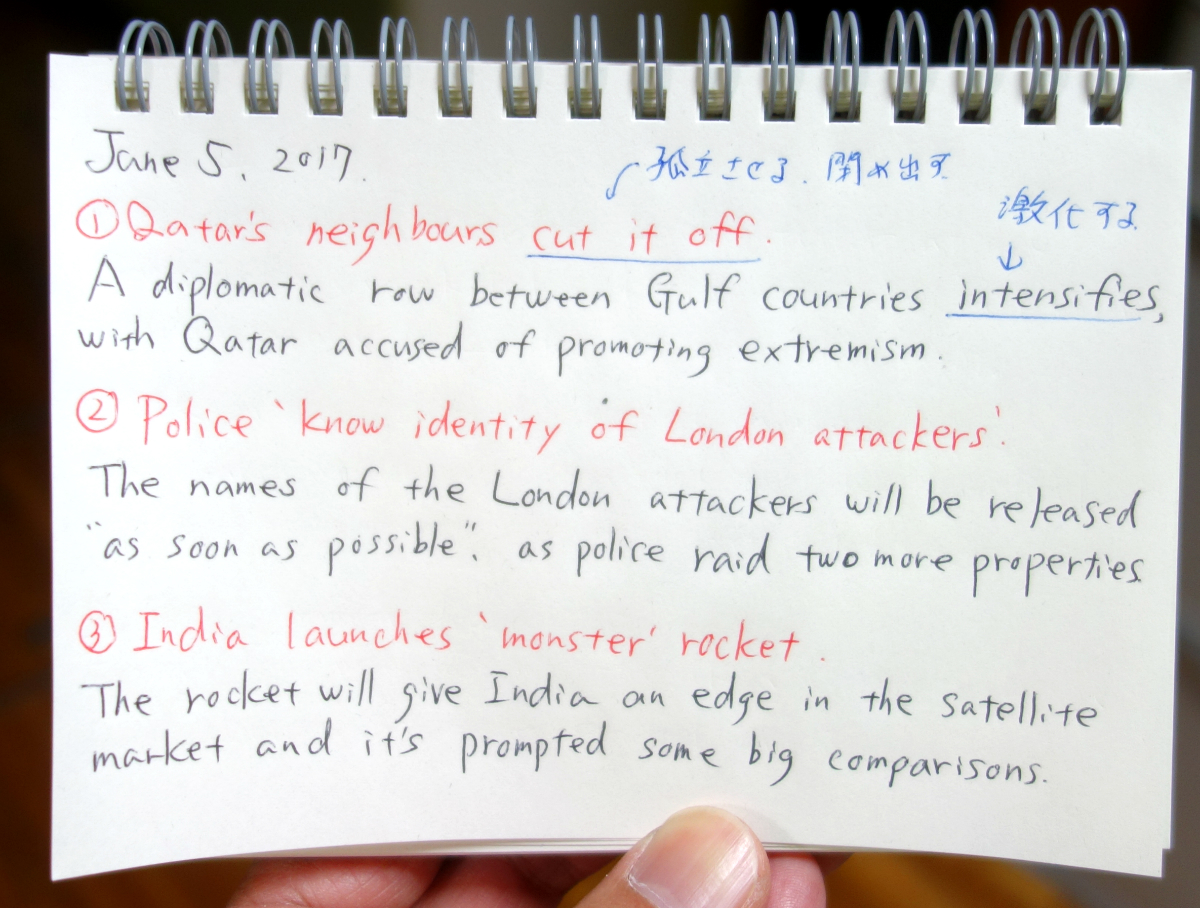 June 5, 2017.
孤立させる、閉め出す
激化する
① Qatar's neighbours cut it off.
A diplomatic row between Gulf countries intensifies,
with Qatar accused of promoting extremism.
② Police 'know identity of London attackers'.
The names of the London attackers will be released
"as soon as possible", as police raid two more properties.
③ India launches 'monster' rocket.
The rocket will give India an edge in the satellite
market and it's prompted some big comparisons.